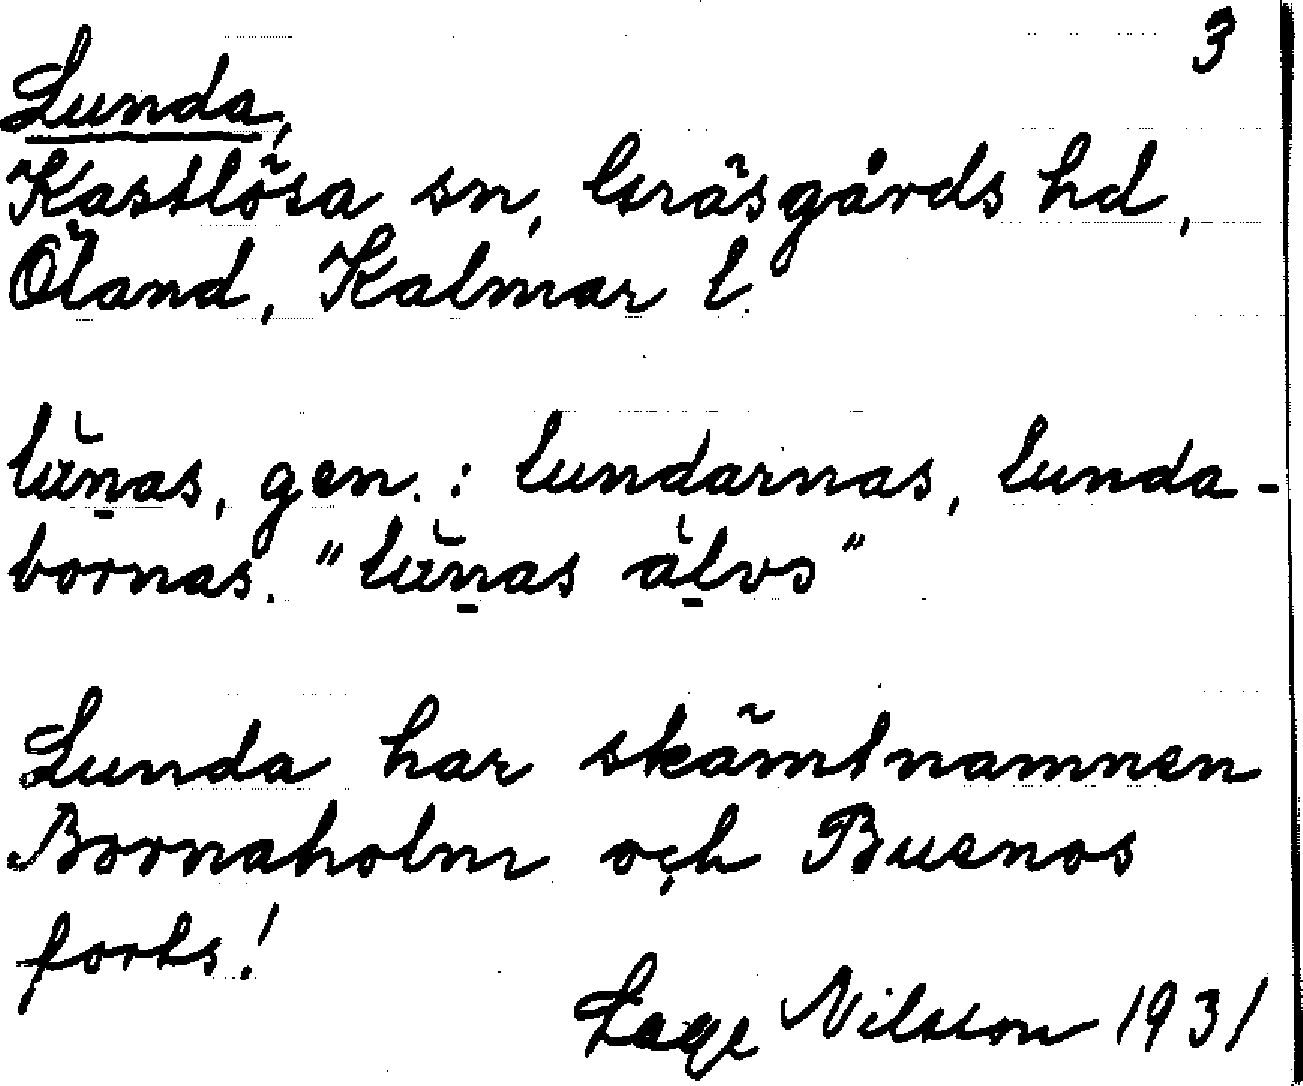 3
Lunda,
Kastlösa sn, Gräsgårds hd,
Öland, Kalmar l.
lunas, gen. : lundarnas, lunda-
bornas. "lunas älvs"
Lunda har skämtnamnen
Bornaholm och Buenos
forts!
Lage Nilsson 1931